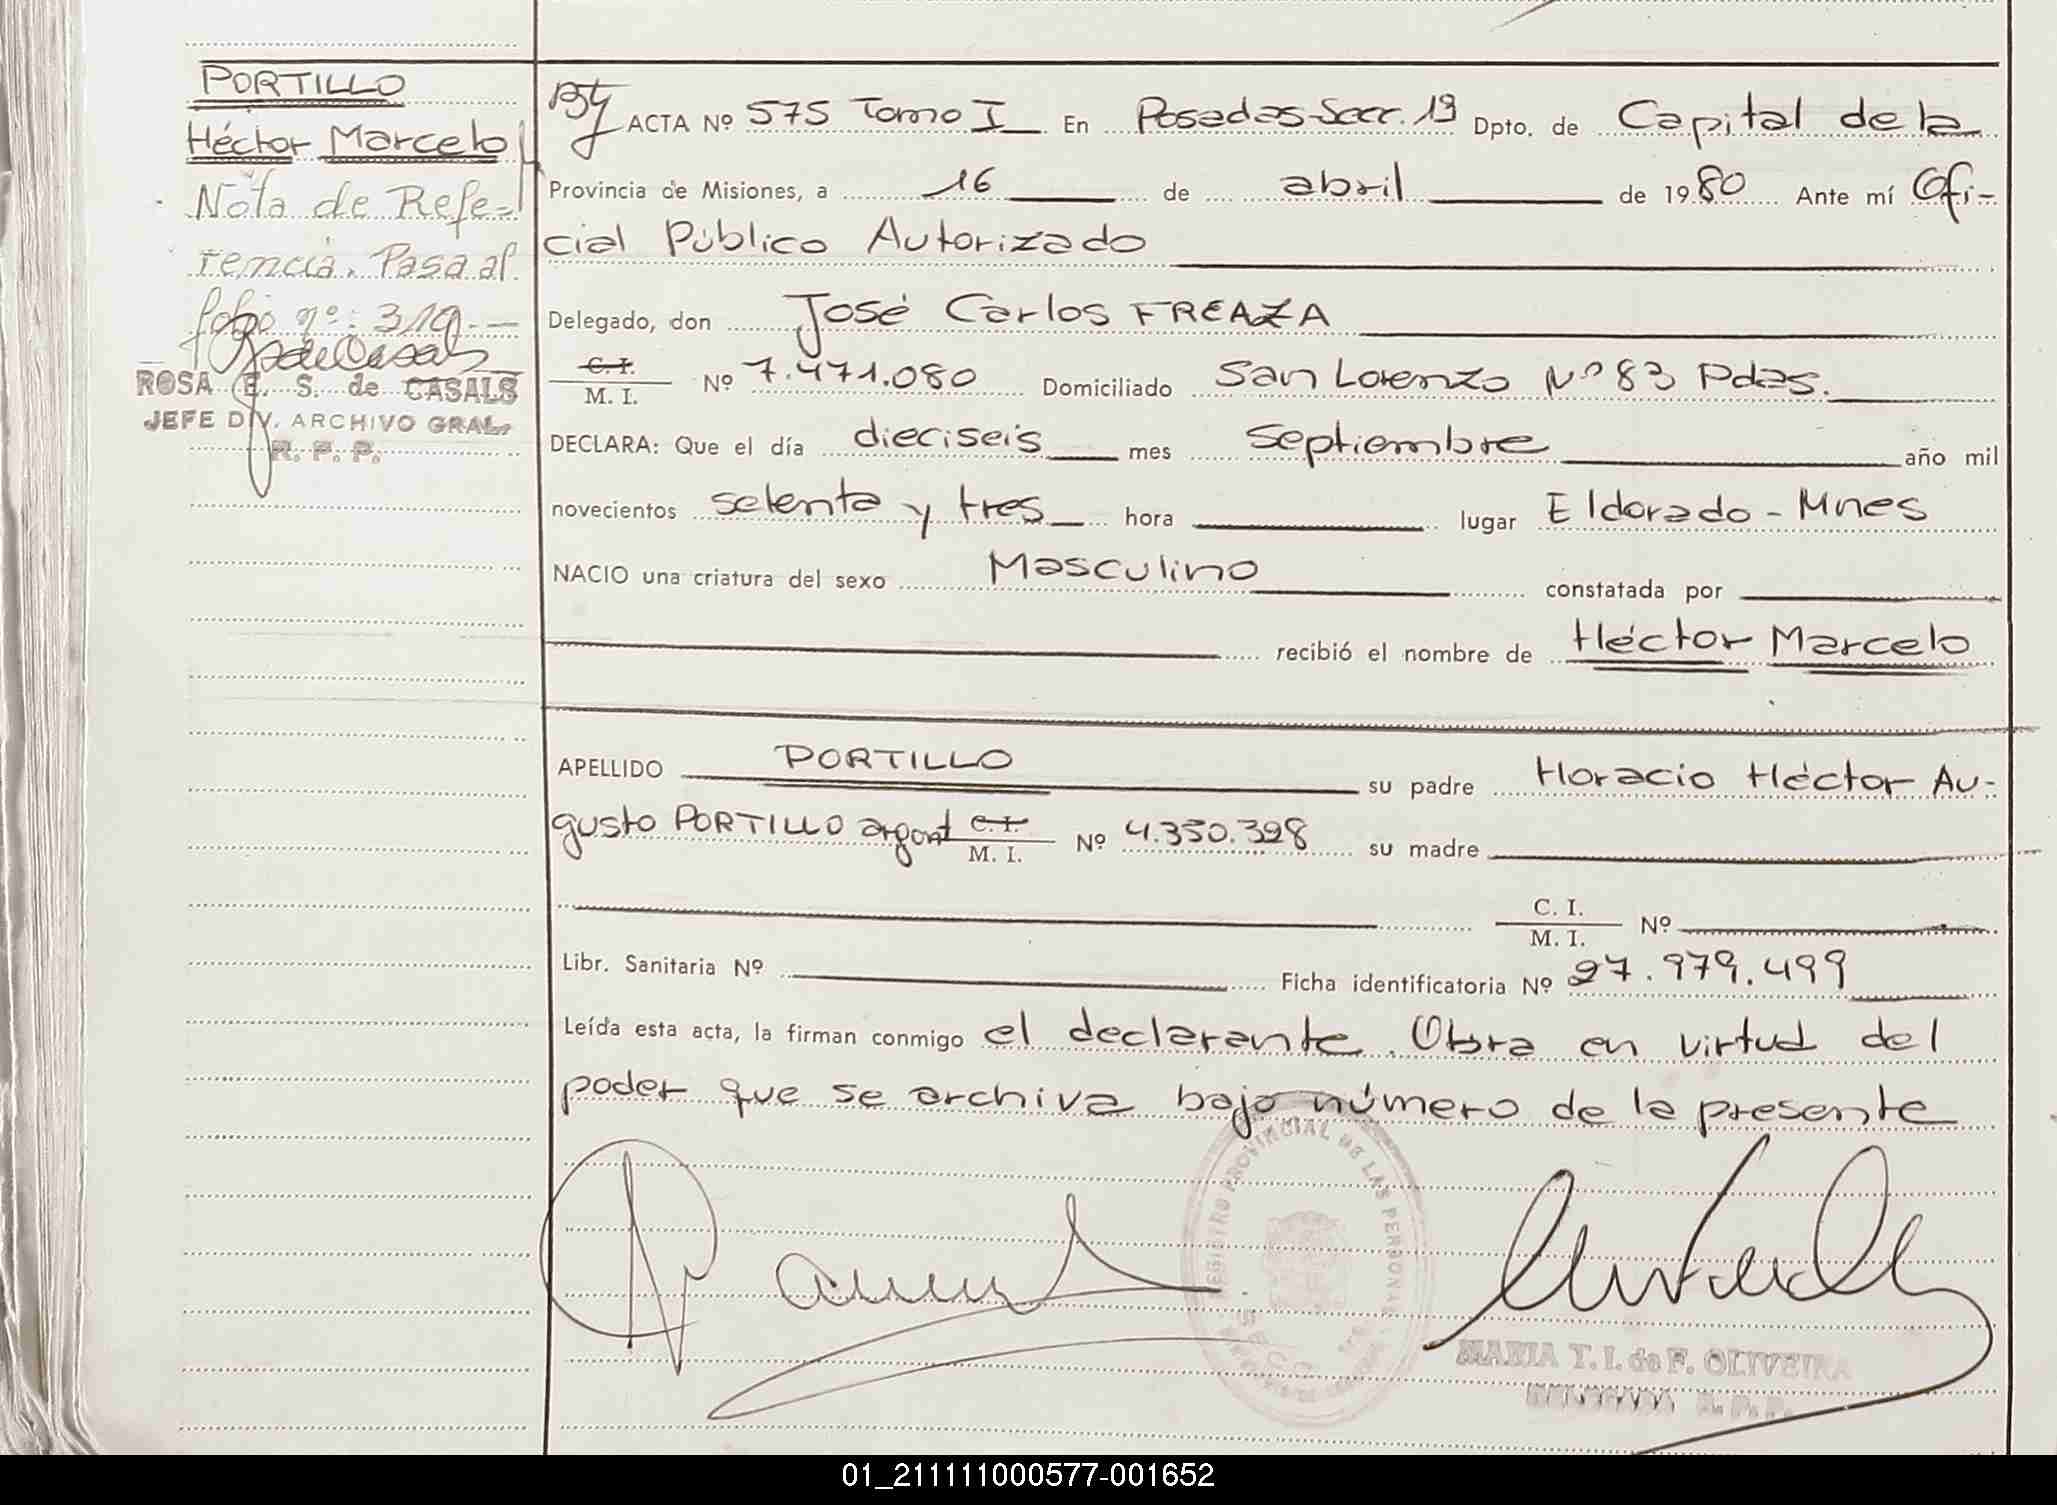 PORTILLO
Héctor Marcelo
Nota de Refe-
rencia. Pasa al
folio nº: 319.—
ROSA E. S. de CASALS
JEFE DIV. ARCHIVO GRAL.
R. P. P.
ACTA Nº 575 Tomo I En Posadas-Secc. 1ª Dpto. de Capital de la
Provincia de Misiones, a 16 de abril de 1980 Ante mí Ofi-
cial Público Autorizado
Delegado, don José Carlos FREAZA
C. I.
M. I. Nº 7.471.080 Domiciliado San Lorenzo Nº 83 Pdas.
DECLARA: Que el día dieciseis mes septiembre año mil
novecientos setenta y tres hora lugar Eldorado - Mnes
NACIO una criatura del sexo Masculino constatada por
recibió el nombre de Héctor Marcelo
APELLIDO PORTILLO su padre Horacio Héctor Au-
gusto PORTILLO argent C. I. M. I. Nº 4.350.398 su madre
C. I.
M. I. Nº
Libr. Sanitaria Nº Ficha identificatoria Nº 27.979.499
Leída esta acta, la firman conmigo el declarante. Obra en virtud del
poder que se archiva bajo número de la presente
REGISTRO PROVINCIAL DE LAS PERSONAS
MARIA T. I. de F. OLIVEIRA
DELEGADA R. P. P.
01_211111000577-001652